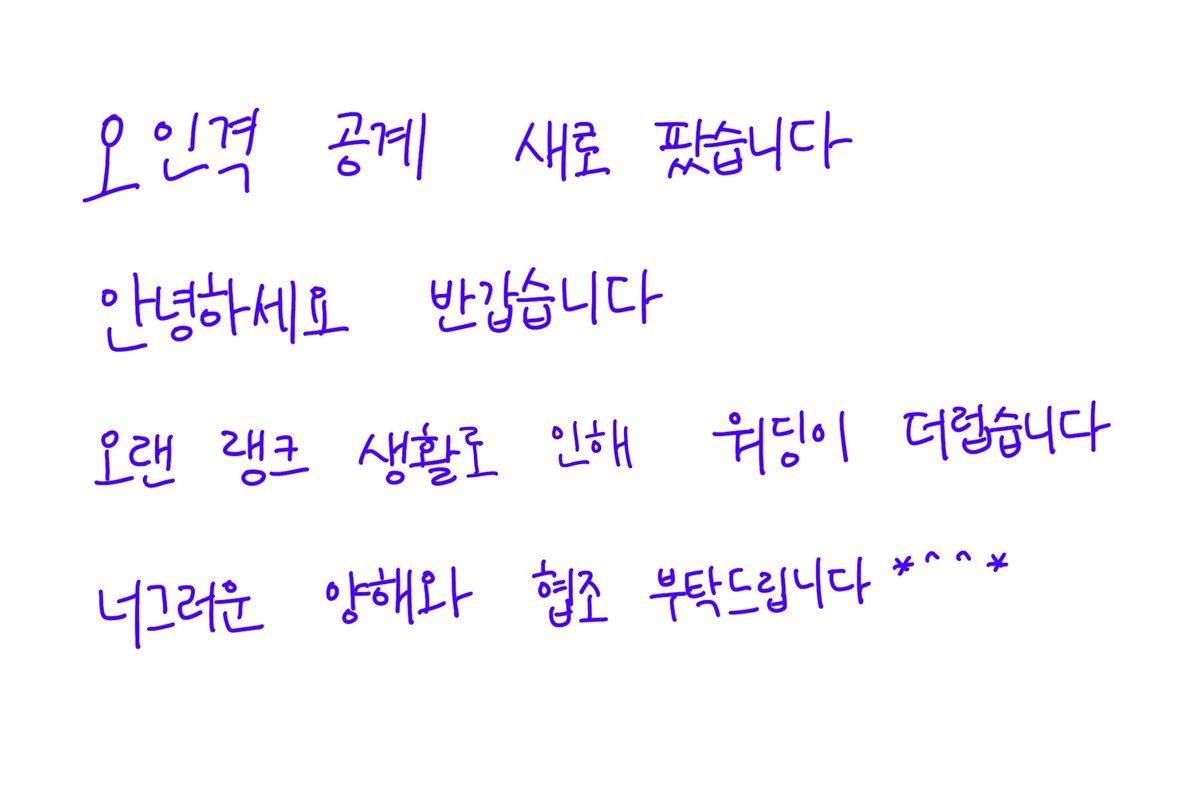 오인격 공계 새로 팠습니다
안녕하세요 반갑습니다
오랜 랭크 생활로 인해 워딩이 더럽습니다
너그러운 양해와 협조 부탁드립니다 *^^*